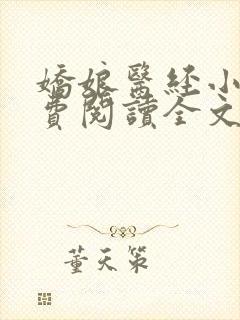 嬌娘醫經小
費閱讀全文
董天策